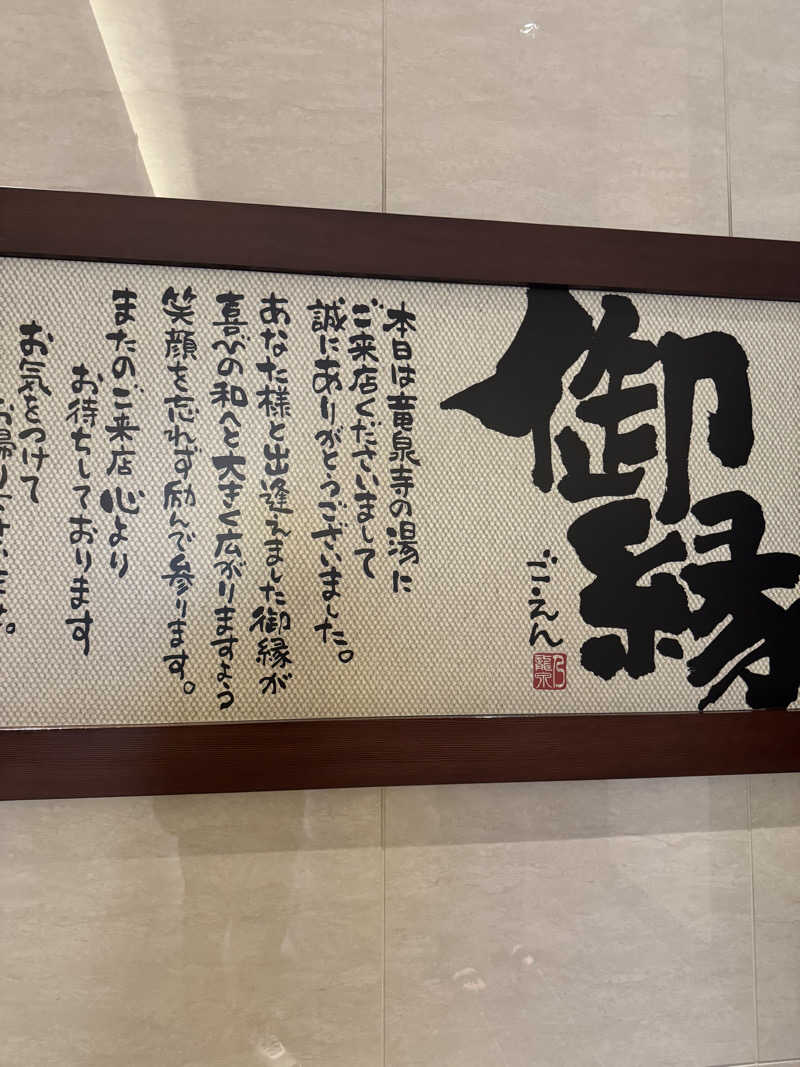 御縁
ご・えん
龍泉
本日は竜泉寺の湯に
ご来店くださいまして
誠にありがとうございました。
あなた様と出逢えました御縁が
喜びの和へと大きく広がりますよう
笑顔を忘れず励んで参ります。
またのご来店心より
お待ちしております
お気をつけて